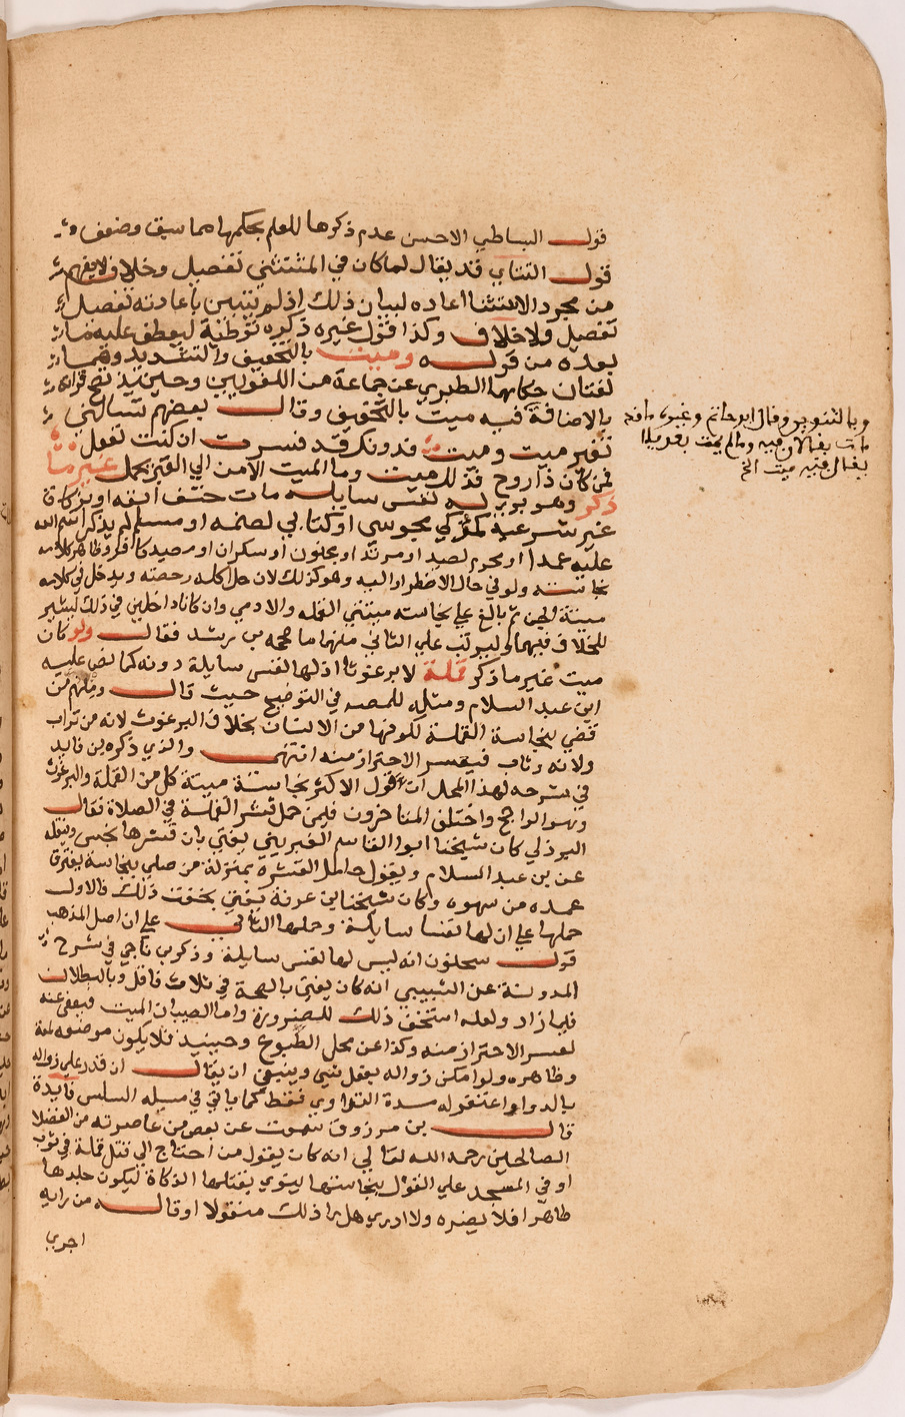 قول البساطي الاحسن عدم ذكرها للعلم بحكمها مما سبق وضعف
قول التتاي قد يقال لما كان في المستثنى تفصيل وخلاف لا يفهم
من مجرد الاستثنا اعاده لبيان ذلك اذ لم يتبين باعادته تفصيل
تفصيل ولا خلاف وكذا قول غيره ذكره توطئة ليعطف عليه ما
بعده من قوله وميت بالتخفيف والتشديد وهما
لغتان حكاهما الطبري عن جماعة من اللغويين وحينيذ تصح قراته
بالاضافة فيه ميت بالتخفيف وقال بعضهم تسالني
تفسير ميت وميت فدونك قد فسرت ان كنت تعقل
فمن كان ذا روح فذلك ميت وما الميت الا من الي القبر يحمل غير ما
ذكر وهو بري له نفس سايلة مات حتف انفه او بزكاة
غير شرعية كمزكي مجوسي او كتابي لصنمه او مسلم لم يذكر اسم الله
عليه عمدا او محرم لصيد او مرتد او مجنون او سكران او مصيد كافر وظاهر كلامه
نجاسته ولو في حال الاضطرار اليه وهو كذلك لان حل اكله رخصة ويدخل في كلامه
ميتة الجن ثم بالغ علي نجاسة ميتتي القملة والادمي وان كانا داخلين في ذلك ليشير
للخلاف فيهما وليرتب علي الثاني منهما ما صححه بن رشد فقال ولو كان
ميت غير ما ذكر قملة لا برغوثا اذ لها نفس سايلة دونه كما نص عليه
ابن عبد السلام ومثله للمصنف في التوضيح حيث قال ومنهم من
قضي بنجاسة القملة لكونها من الانسان بخلاف البرغوث لانه من تراب
ولانه وثاب فيعسر الاحتراز منه انتهى والذي ذكره بن فايد
في شرحه لهذا المحل ان قول الاكثر نجاسة ميتة كل من القملة والبرغوث
وهو الراجح واختلف المتاخرون فيمن حمل قشر القملة في الصلاة فقال
البرزلي كان شيخنا ابوا القاسم الغبريني يفتي بان قشرها نجس وينقله
عن بن عبد السلام ويقول حامل القشرة بمنزلة من صلي بنجاسة يفترق
عمده من سهوه وكان شيخنا ابن عرفة يفتي بخفة ذلك فالاول
حملها علي ان لها نفسا سايلة وحملها الثاني علي ان اصل المذهب
قول سحنون انه ليس لها نفس سايلة وذكر بن ناجي في شرح
المدونة عن الشبيبي انه كان يفتي بالصحة في ثلاث فاقل وبالبطلان
فيما زاد ولعله استخف ذلك للضرورة واما الصيبان الميت فيعفى عنه
لعسر الاحتراز منه وكذا عن محل الطبوع وحينيذ فلا يكون موضعه لمعة
وظاهره ولو امكن زواله بفعل شي وينبغي ان يقال ان قدر علي زواله
بالدوا اغتفر له مدة التداوي فقط كما ياتي في مسيلة السلس فايدة
قال بن مرزوق سمعت عن بعض من عاصرته من الفضلا
الصالحين رحمه الله تعالي انه كان يقول من احتاج الي قتل قملة في ثوب
او في المسجد علي القول بنجاستها ينوي بقتلها الذكاة ليكون جلدها
طاهرا فلا يضره ولا ادري هل راذلك منقولا او قاله من رايه
اجري
وبالتنوير وقال ابو حاتم وغيره
مات يقال فيه ميت وما لم يمت بعد
يقال فيه ميت الخ